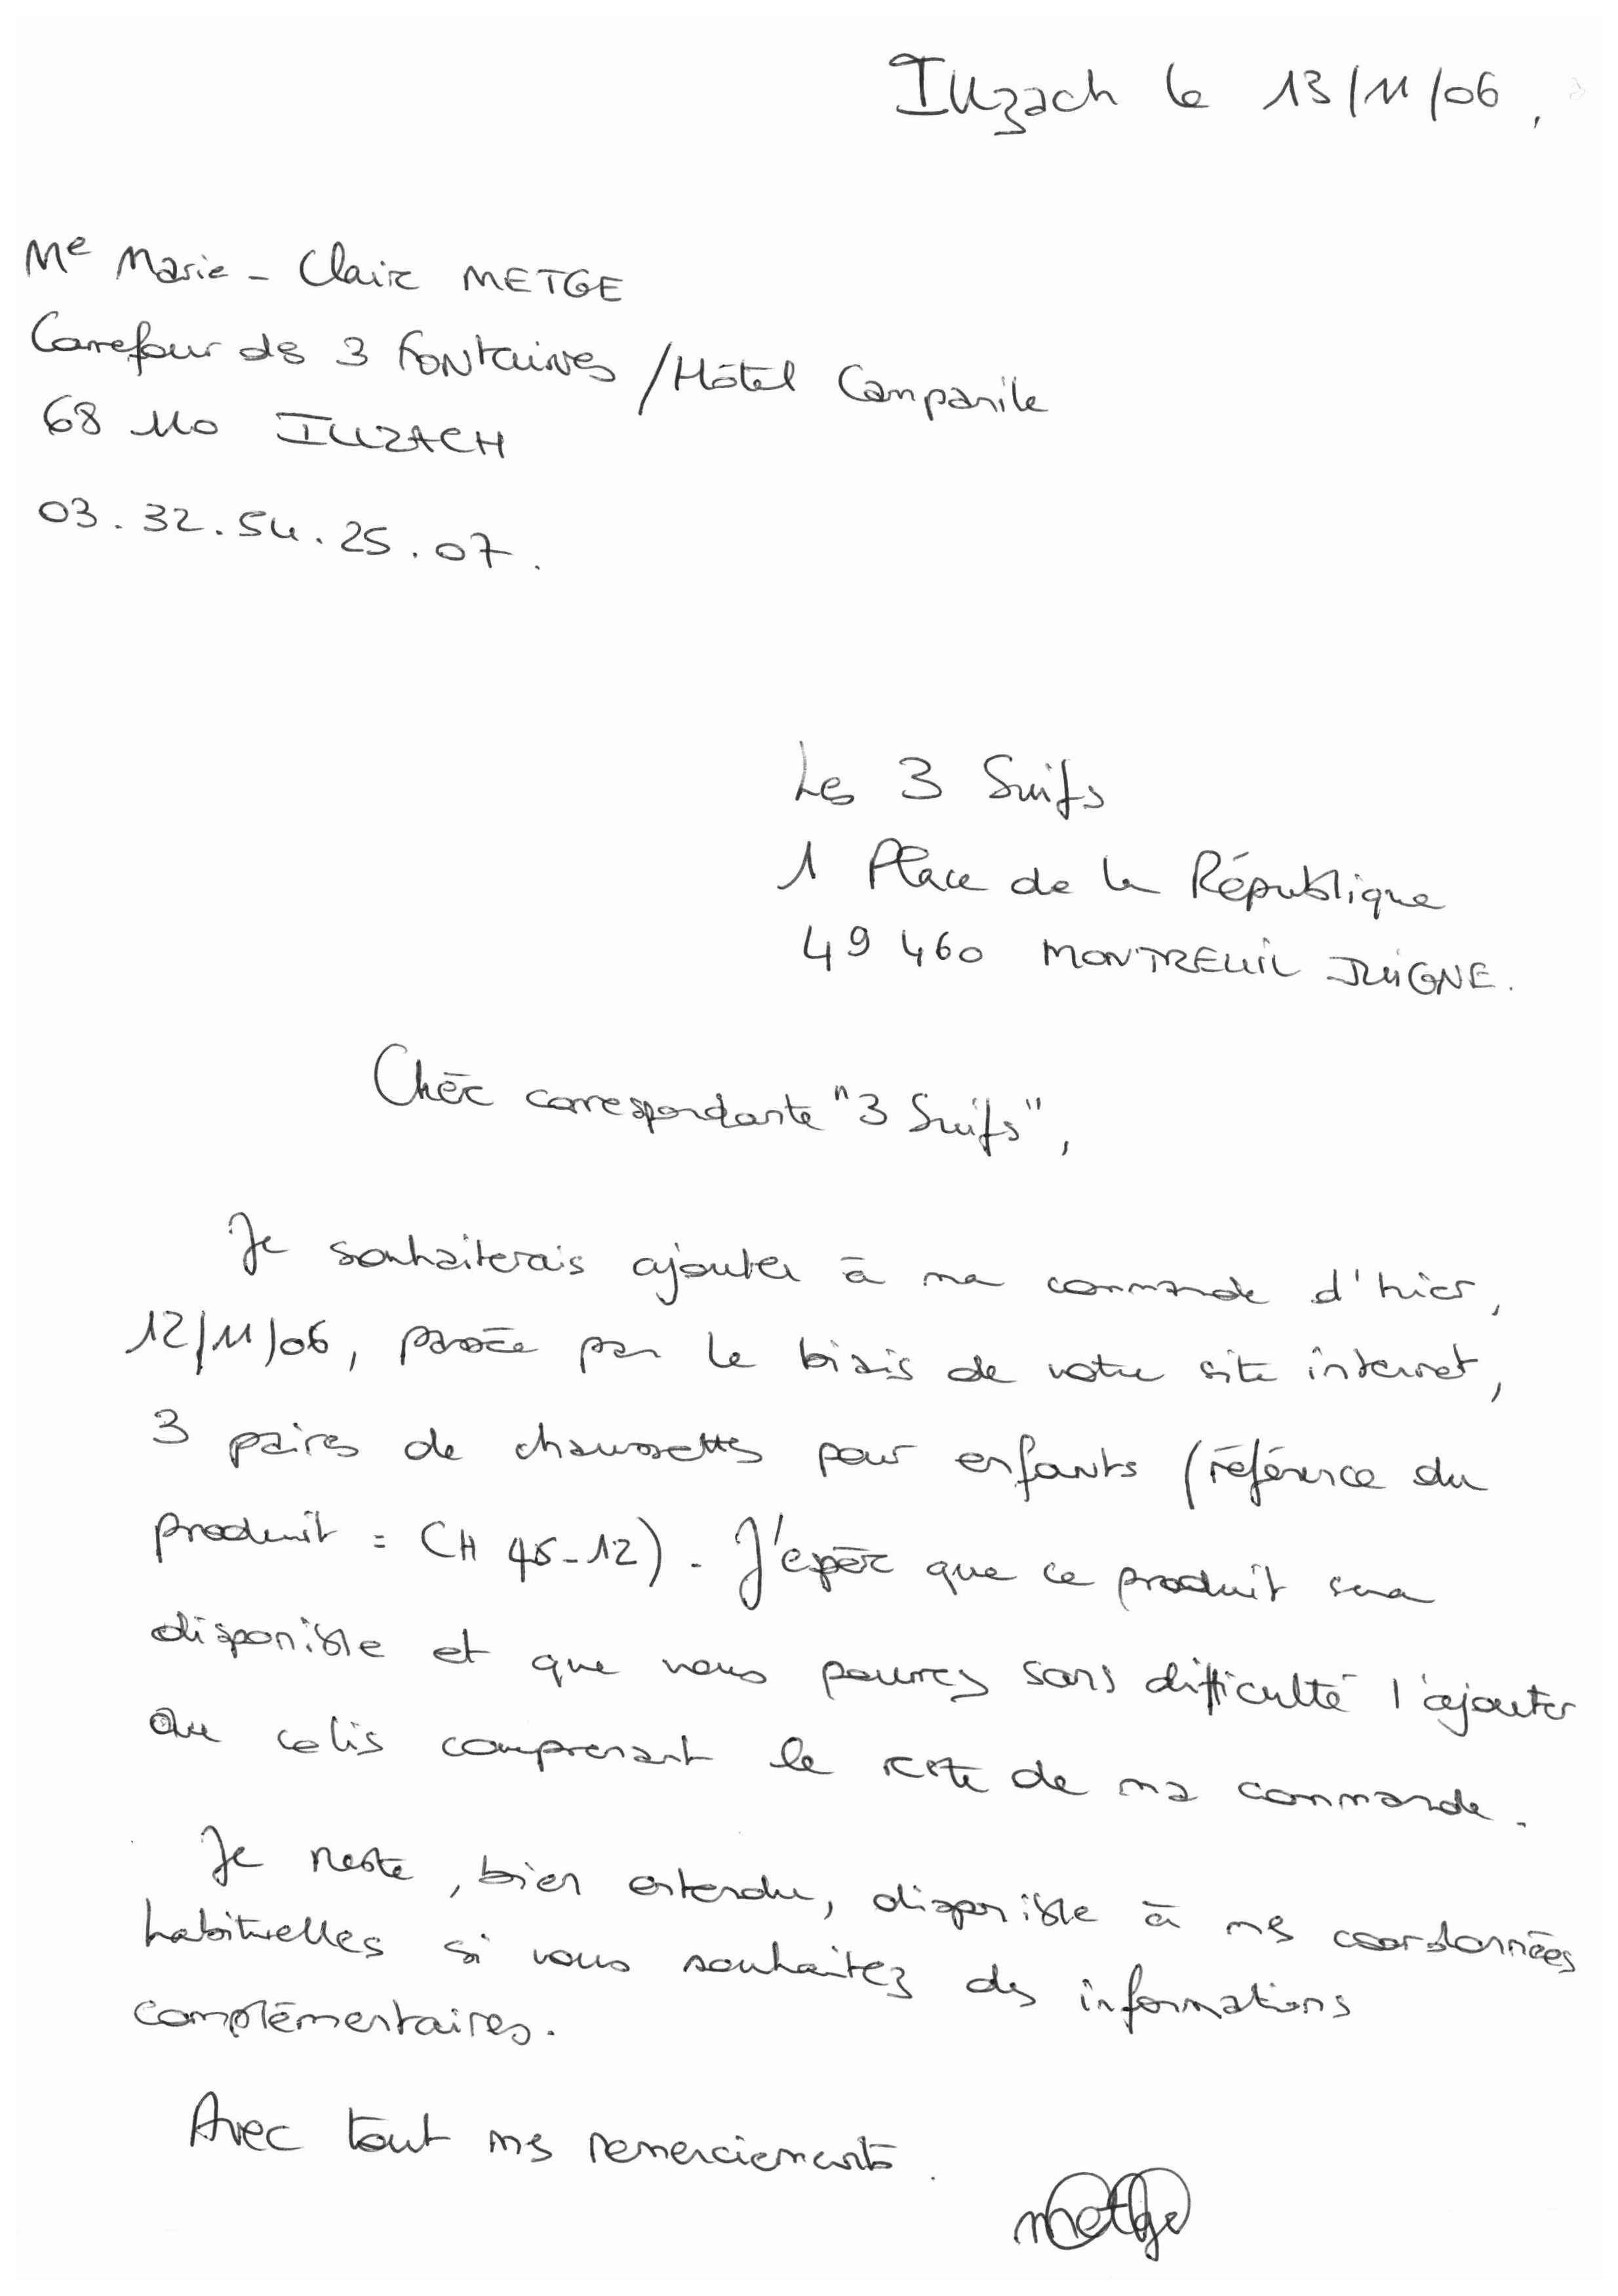 Illzach le 13/11/06,
Me Marie-Claire METGE
Carrefour des 3 Fontaines / Hôtel Campanile
68 110 ILLZACH
03.32.54.25.07.
Les 3 Suifs
1 Place de la République
49 460 MONTREUIL JUIGNE.
Chère correspondante "3 Suifs",
Je souhaiterais ajouter à ma commande d'hier,
12/11/06, passée par le biais de votre site internet,
3 paires de chaussettes pour enfants (référence du
produit = CH 45-12). J'espère que ce produit sera
disponible et que vous pourrez sans difficulté l'ajouter
au colis comprenant le reste de ma commande.
Je reste, bien entendu, disponible à mes coordonnées
habituelles si vous souhaitez des informations
complémentaires.
Avec tout mes remerciements.
metge